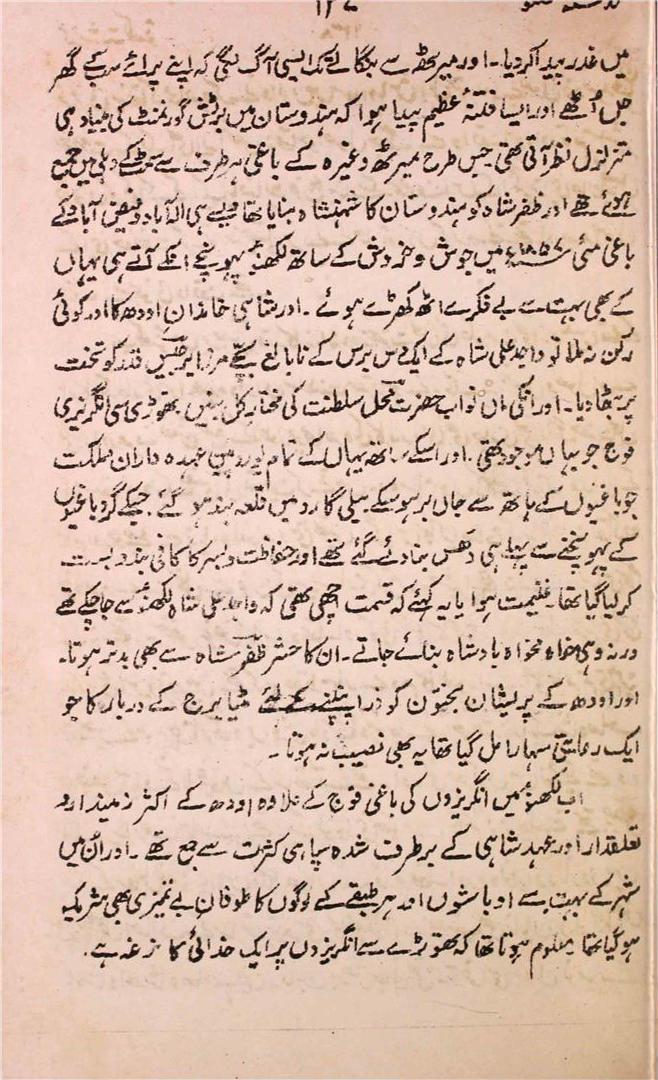 ۱۳۷
میں غدر پیدا کر دیا۔ اور میرٹھ سے بنگالے تک ایسی آگ لگی کہ اپنے پرائے سب کے گھر
جل اُٹھے اور ایسا فتنۂ عظیم پیدا ہوا کہ ہندوستان میں برٹش گورنمنٹ کی بنیاد ہی
متزلزل نظر آتی تھی جس طرح میرٹھ وغیرہ کے باغی ہر طرف سے سمٹ کے دہلی میں جمع
ہوئے تھے اور ظفر شاہ کو ہندوستان کا شہنشاہ بنایا تھا ویسے ہی الہ آباد و فیض آباد کے
باغی مئی ۱۸۵۷ء میں جوش و خروش کے ساتھ لکھنؤ پہونچے انکے آتے ہی یہاں
کے بھی بہت سے بے فکرے اٹھ کھڑے ہوئے۔ اور شاہی خاندان اودھ کا اور کوئی
رکن نہ ملا تو واجد علی شاہ کے ایک دس برس کے نابالغ بچے مرزا برجیس قدر کو تخت
پر بٹھا دیا۔ اور انکی ماں نواب حضرت محل سلطنت کی مختار کل بنیں۔ تھوڑی سی انگریزی
فوج جو یہاں موجود تھی۔ اور اسکے ساتھ یہاں کے تمام یورپین عہدہ داران مملکت
جو باغیوں کے ہاتھ سے جاں بر ہو سکے بیلی گارد میں قلعہ بند ہو گئے جسکے گرد باغیوں
کے پہونچنے سے پہلے ہی دھس بنا دئے گئے تھے اور حفاظت و بسر کا کافی بندوبست
کر لیا گیا تھا۔ غنیمت ہوا یا یہ کہئے کہ قسمت اچھی تھی کہ واجد علی شاہ لکھنؤ سے جا چکے تھے
ورنہ وہی خواہ نخواہ بادشاہ بنائے جاتے۔ ان کا حشر ظفر شاہ سے بھی بدتر ہوتا۔
اور اودھ کے پریشان بختوں کو ذرا پنپنے کے لئے مٹیا برج کے دربار کا جو
ایک رعایتی سہارا مل گیا تھا یہ بھی نصیب نہ ہوتا۔
اب لکھنؤ میں انگریزوں کی باغی فوج کے علاوہ اودھ کے اکثر زمیندار و
تعلقدار اور عہد شاہی کے برطرف شدہ سپاہی کثرت سے جمع تھے۔ اور اُن میں
شہر کے بہت سے اوباشوں اور ہر طبقے کے لوگوں کا طوفان بے تمیزی بھی شریک
ہو گیا تھا۔ معلوم ہوتا تھا کہ تھوڑے سے انگریزوں پر ایک خدائی کا نرغہ ہے۔